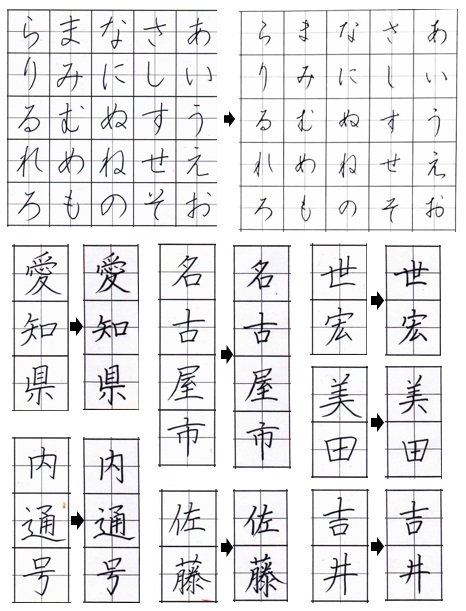 あいうえお
さしすせそ
なにぬねの
まみむめも
らりるれろ
あいうえお
さしすせそ
なにぬねの
まみむめも
らりるれろ
愛知県
愛知県
名古屋市
名古屋市
世宏
世宏
美田
美田
内通号
内通号
佐藤
佐藤
吉井
吉井